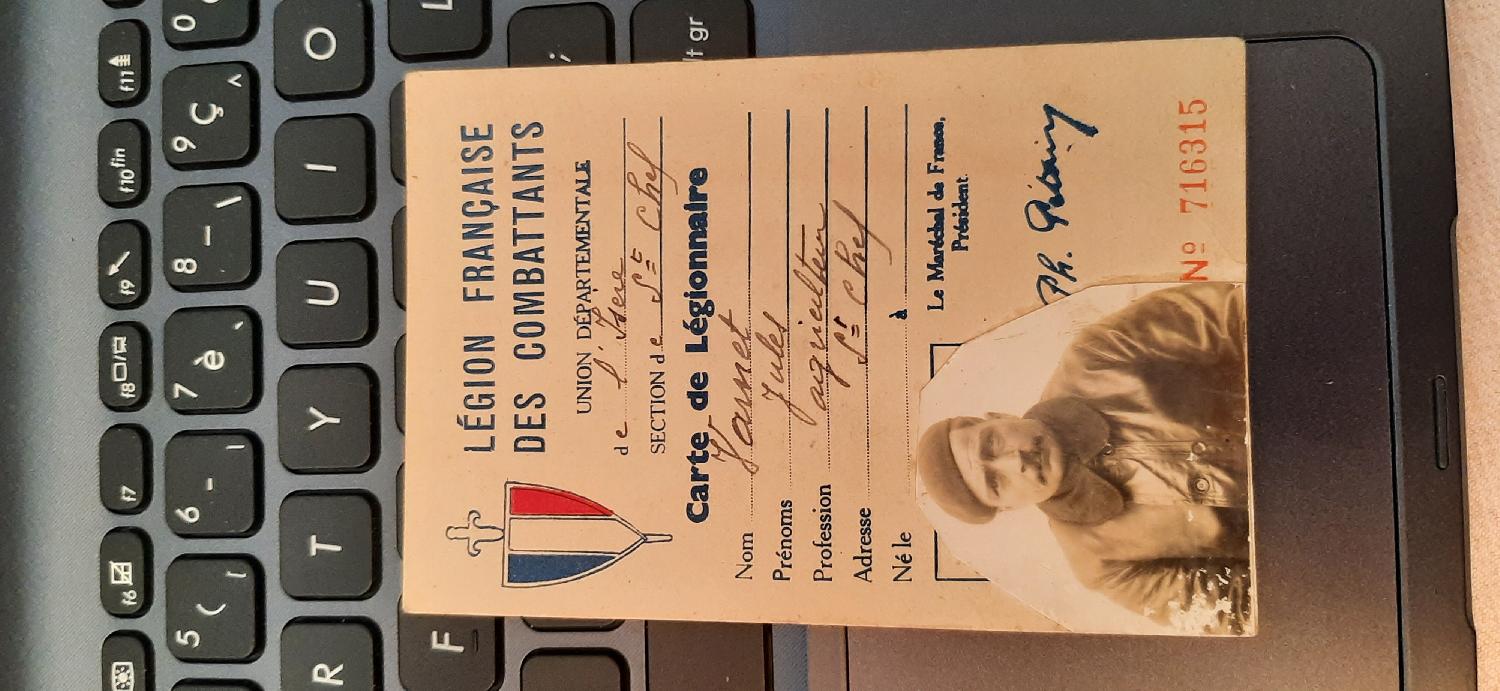 LÉGION FRANÇAISE
DES COMBATTANTS
UNION DÉPARTEMENTALE
de l'Isere
SECTION de St Chef
Carte de Légionnaire
Nom
Prénoms Jules
Profession agriculteur
Adresse St Chef
Né le à
Le Maréchal de France,
Président.
Ph. Pétain
Nº 716315
f6
f7
f8
f9
f10 fin
f11
5 (
6 -
7 è `
8 _ \
9 ç ^
0
R T Y U I O
F
L
;
lt gr